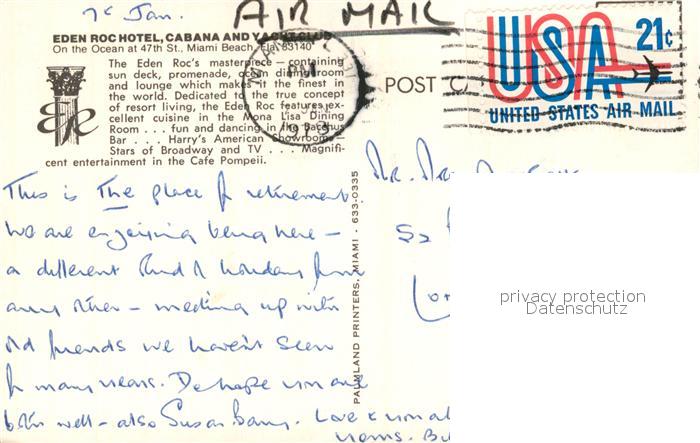 7th Jan.
AIR MAIL
EDEN ROC HOTEL, CABANA AND YACHT CLUB
On the Ocean at 47th St., Miami Beach, Fla. 33140
The Eden Roc's masterpiece — containing
sun deck, promenade, ocean dining room
and lounge which makes it the finest in
the world. Dedicated to the true concept
of resort living, the Eden Roc features ex-
cellent cuisine in the Mona Lisa Dining
Room . . . fun and dancing in the Bacchus
Bar . . . Harry's American Showrooms—
Stars of Broadway and TV . . . Magnifi-
cent entertainment in the Cafe Pompeii.
POST
USA 21c
UNITED STATES AIR MAIL
PM
PALMLAND PRINTERS, MIAMI - 633-0335
This is The place for retirement
We are enjoying being here –
a different kind of holiday from
any other – meeting up with
old friends we haven't seen
for many years. Do hope you are
both well – also Susan
Love
52
privacy protection
Datenschutz